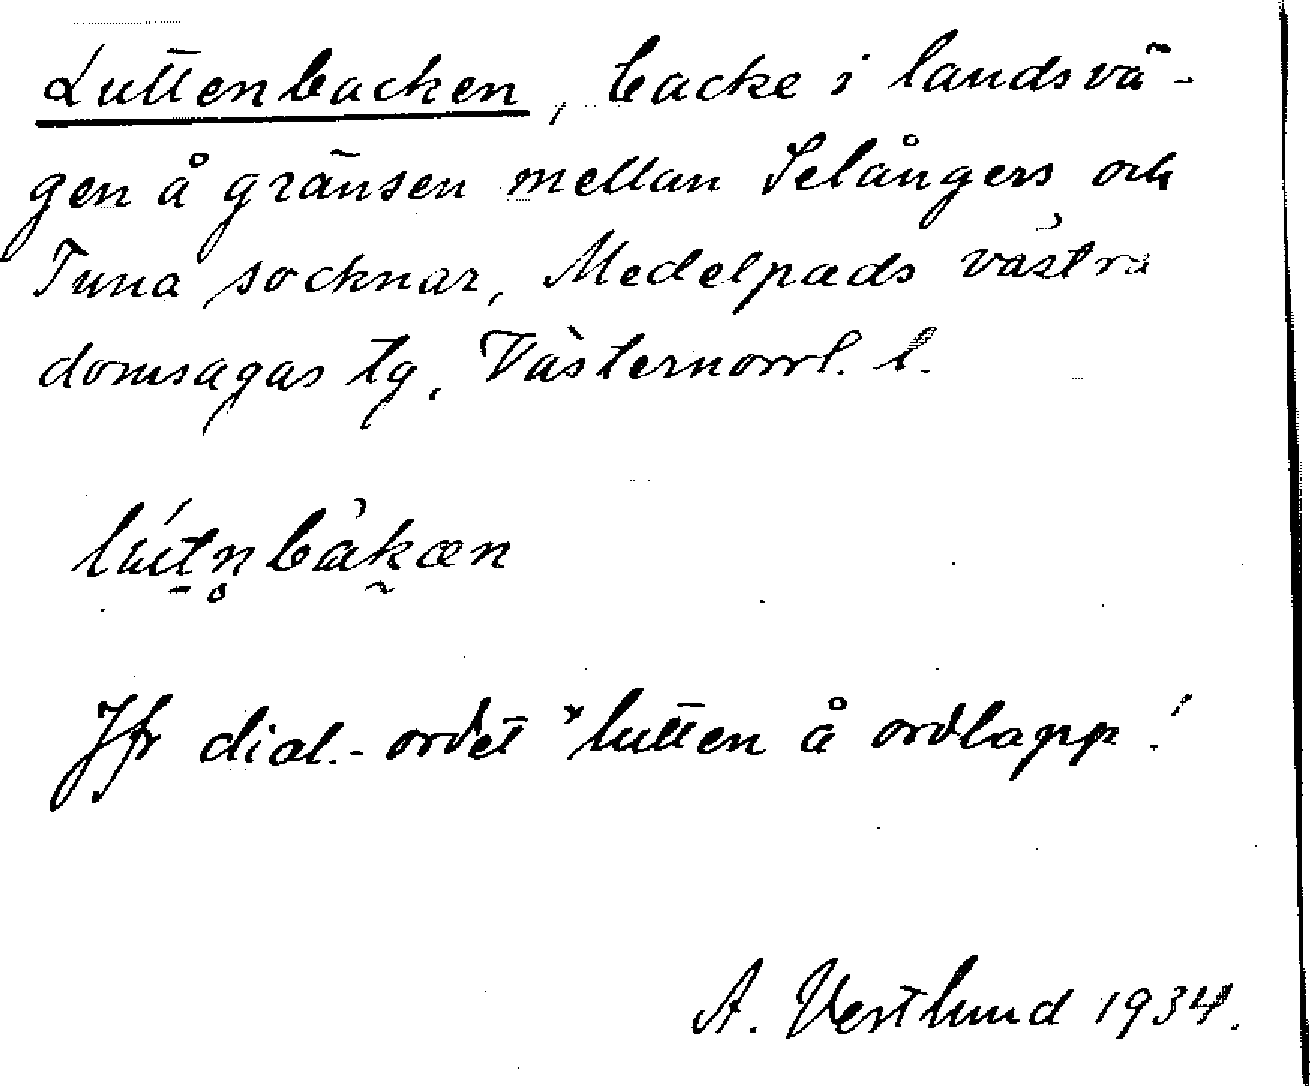 Luttenbacken, backe i landsvä-
gen å gränsen mellan Selångers och
Tuna socknar, Medelpads västra
domsagas tg, Västernorrl. l.
lútn̥bàkæn
Jfr dial.-ordet *lutten å ordlapp!
A. Vestlund 1934.